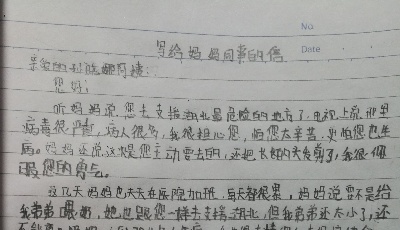 No
Date
写给妈妈同事的信
亲爱的
您好:
听妈妈说,您去支援湖北最危险的地方了。电视上说那里
病毒很严重,病人很多,我很担心您,怕您太辛苦,更怕您也生
病。妈妈还说这次是您主动要去的,还把长长的头发剪了,我很佩
服您的勇气。
这几天妈妈也天天在医院加班,每天都很累,妈妈说要不是给
我弟弟喂奶,她也跟您一样去支援湖北,但我弟弟还太小了,还